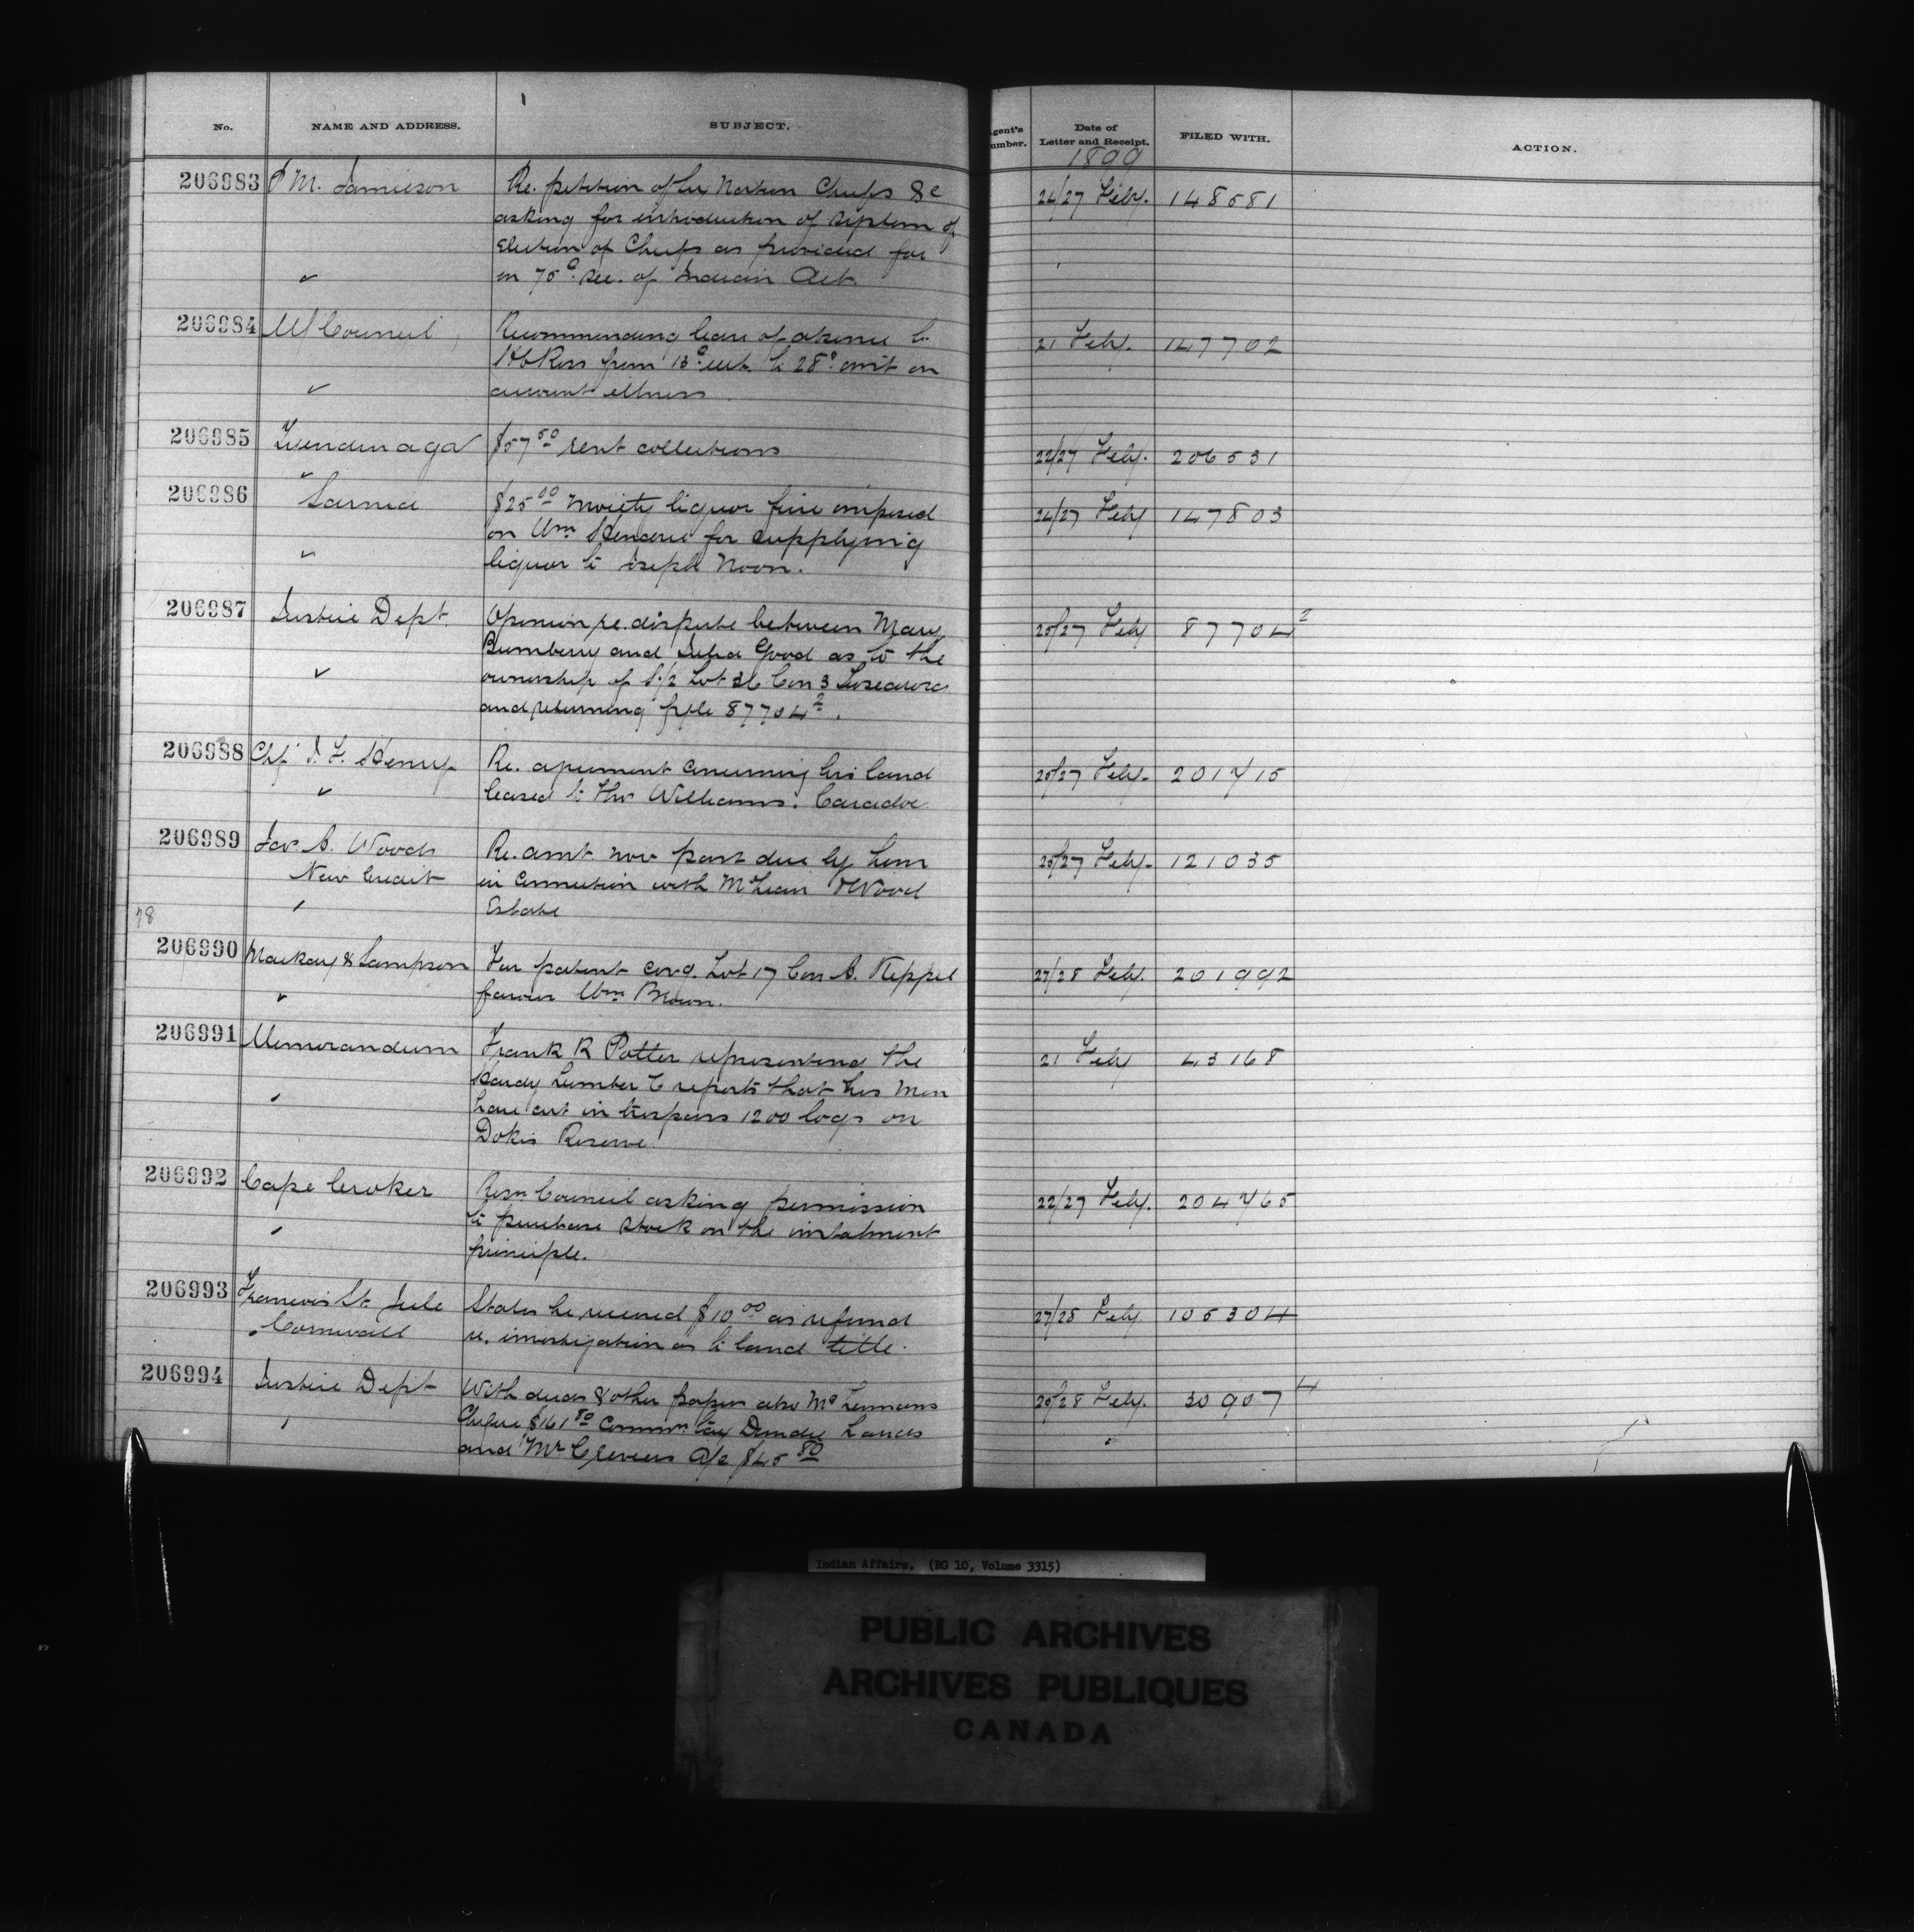 No. NAME AND ADDRESS. SUBJECT. Agent's Number. Date of Letter and Receipt. FILED WITH. ACTION.
1899
206983 P M. Jamieson Re. petition of Northern Chiefs &c 24/27 Feby. 148581
asking for introduction of system of
Election of Chiefs as provided for
in 75 Sec. of Indian Act.
206984 Council Recommending leave of absence to 21 Feby. 147702
Ross from 13 ult. to 28 on
account illness
206985 Tyendinaga $57 50 rent collections 22/27 Feby. 206531
206986 Sarnia $25 00 moiety liquor fine imposed 24/27 Feby 147803
on Wm for supplying
liquor to Joseph Noon.
206987 Justice Dept. Opinion re. dispute between Mary 25/27 Feby 87704 2
Bumberry and Julia Good as to the
ownership of S.1/2 Lot 36 Con 3 Tuscarora
and returning file 87704 2.
206988 Chf Henry Re. agreement concerning his land 25/27 Feby. 201415
leased to Thos Williams. Caradoc
206989 Jas. A. Wood Re. amt. now past due by him 25/27 Feby. 121035
New Credit in connection with McLean & Wood
Estate
78
206990 Mackay & Sampson For patent cov.g. Lot 17 Con A. Keppel 27/28 Feby. 201992
favour Wm Brown.
206991 Memorandum Frank R Potter representing the 21 Feby 43168
Hardy Lumber Co reports that his men
have cut in trespass 1200 logs on
Dokis Reserve
206992 Cape Croker Resn. Council asking permission 22/27 Feby. 204465
to purchase stock on the instalment
principle.
206993 Francis St. Jule States he received $10 00 as refund 27/28 Feby. 105304
Cornwall re. investigation as to land title.
206994 Justice Dept With deeds & other papers also 25/28 Feby. 30907 4
Cheque $161 80 Dundee Lands
and Mr a/c $45 80
Indian Affairs. (RG 10, Volume 3315)
PUBLIC ARCHIVES
ARCHIVES PUBLIQUES
CANADA